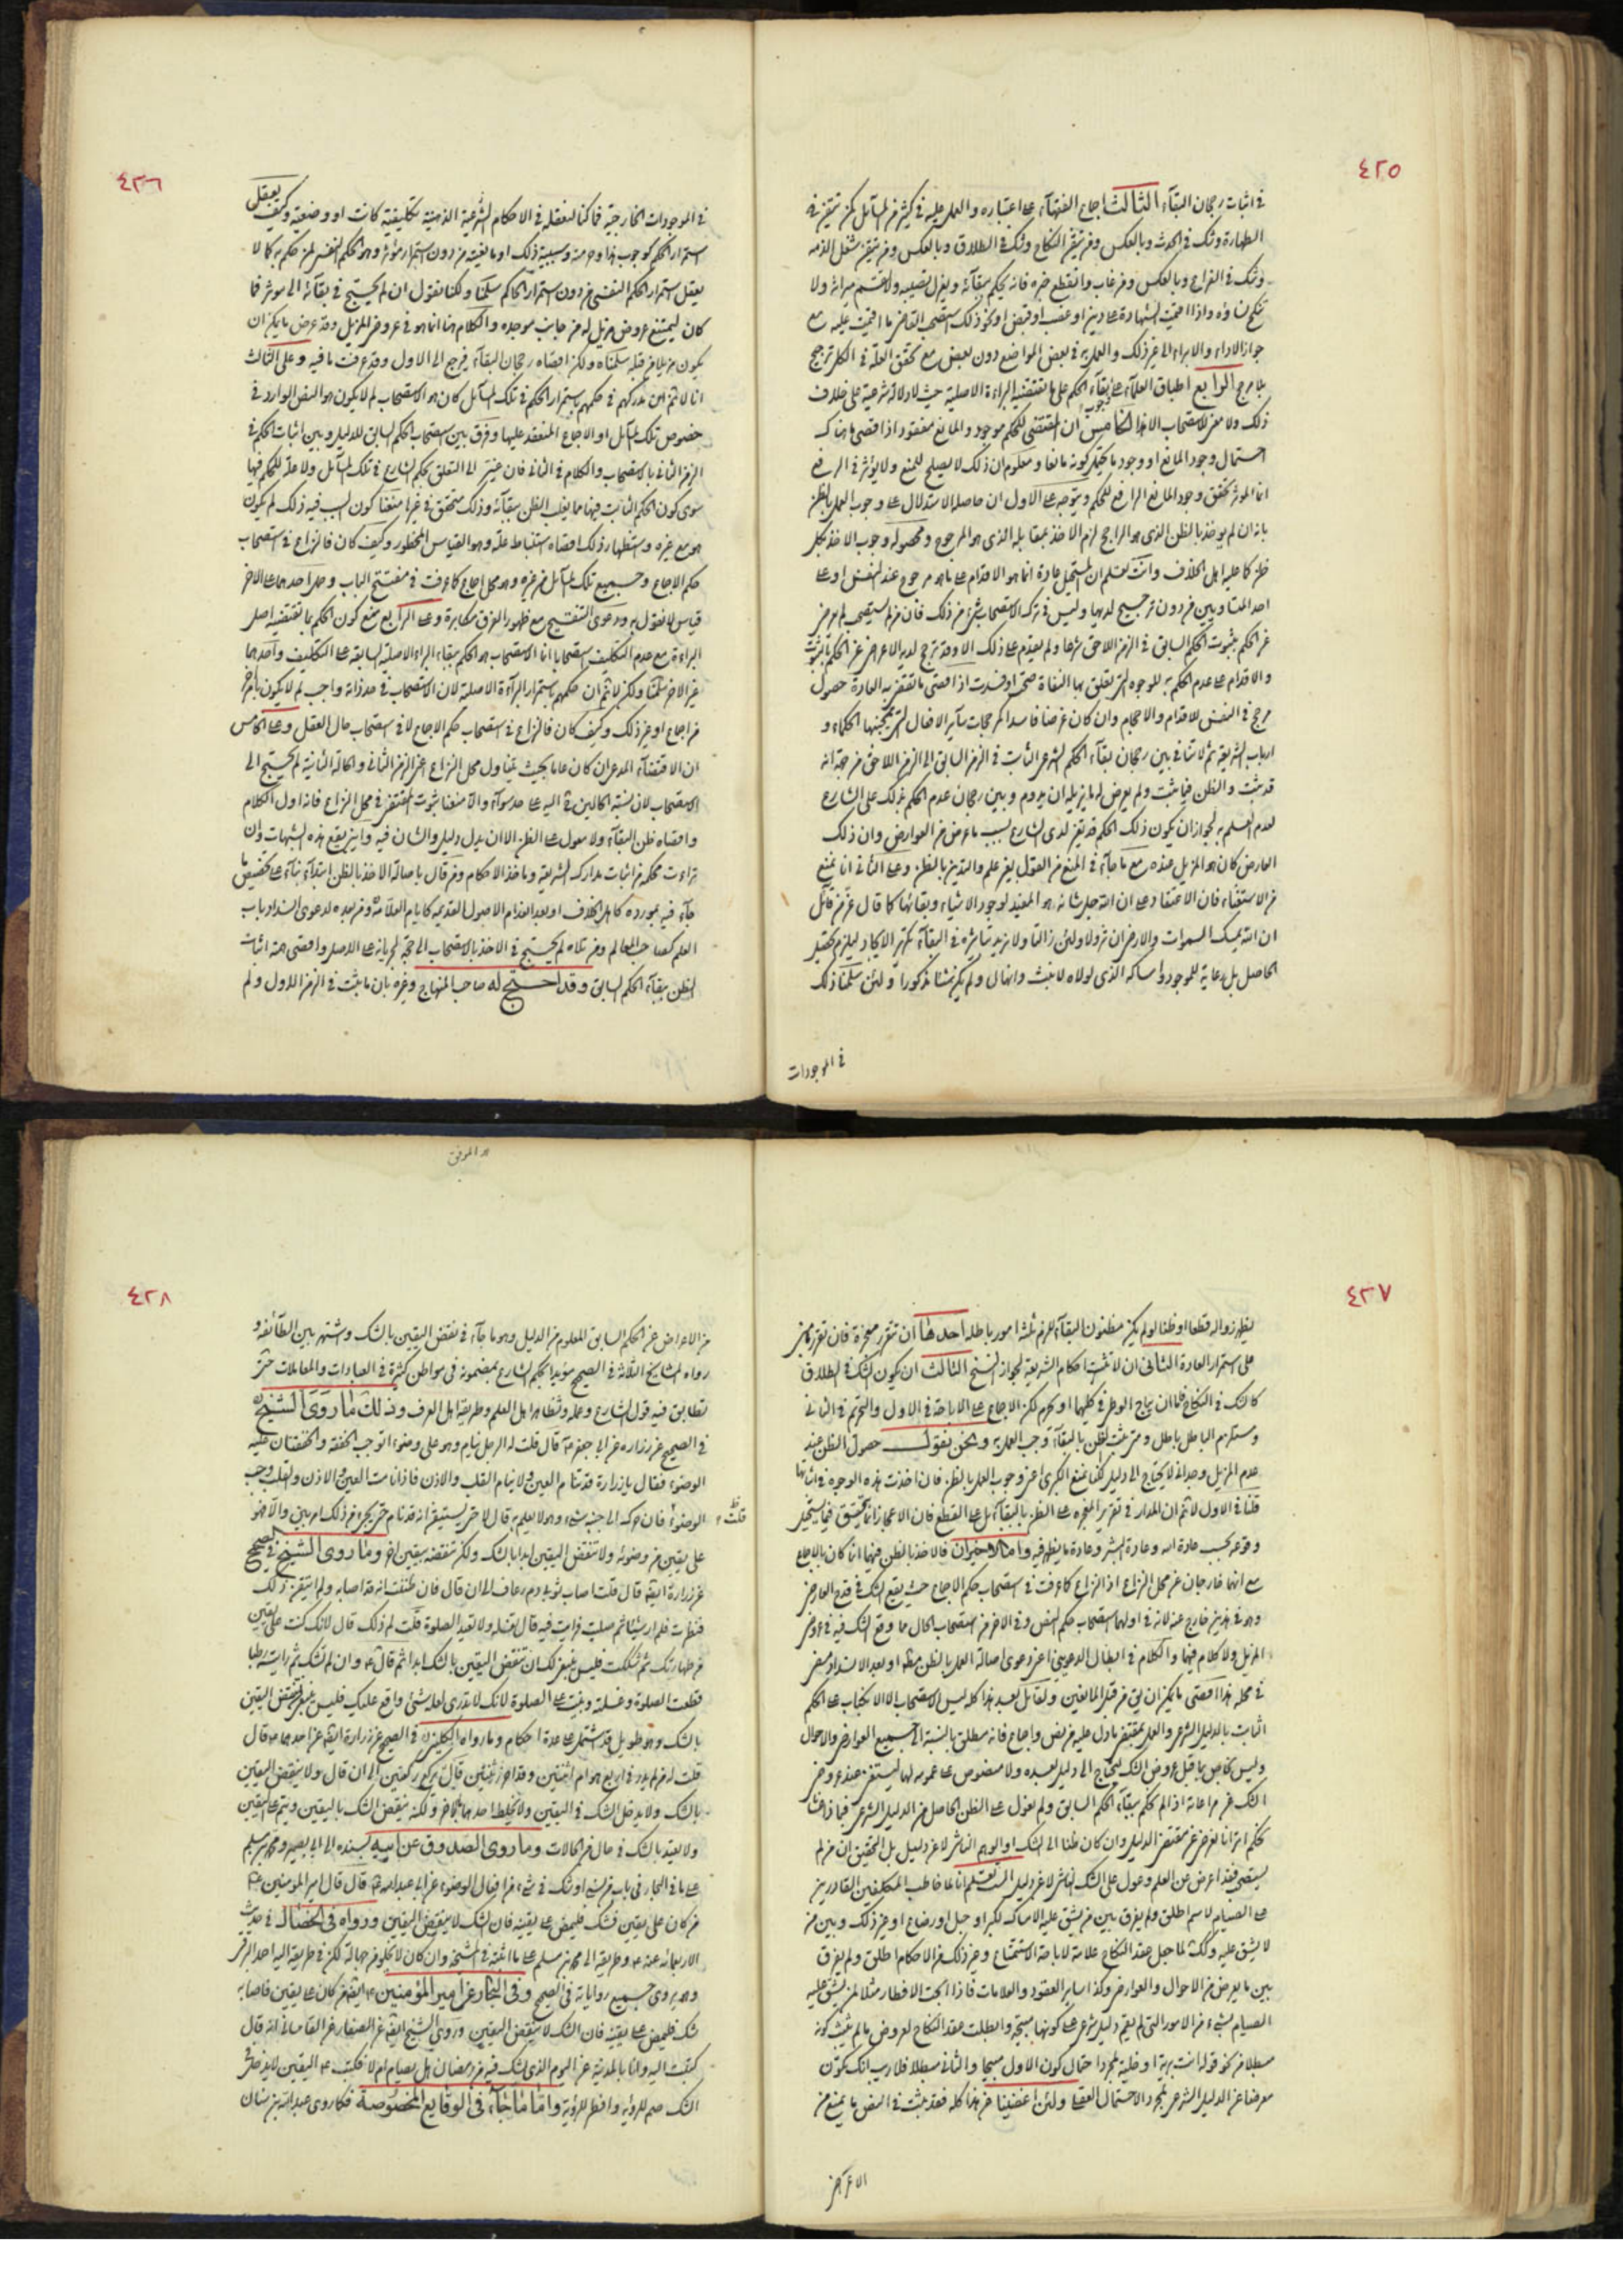 ٤٢٥
في اثبات رجحان البقآء الثالث اجماع الفقهآء على اعتباره والعمل عليه في كثير من المسآئل كمن تيقن
الطهارة وشك في الحدث وبالعكس ومن تيقن النكاح وشك في الطلاق وبالعكس ومن تيقن شغل الذمه
وشك في الفراغ وبالعكس ومن غاب وانقطع خبره فانه يحكم ببقآئه ويعزل نصيبه ولا يقسم ميراثه ولا
تنكح نساؤه واذا اقيمت الشهادة على دين او غصب او قبض او نحو ذلك
جواز الاداء والابراء الى غير ذلك والعمل به في بعض المواضع دون بعض مع تحقق العلة في الكل ترجيح
بلا مرجح الرابع اطباق العلمآء على بقآء الحكم على ما تقتضيه البراءة الاصلية حيث لا دلالة شرعية على خلاف
ذلك ولا معنى للاستصحاب الا هذا الخامس ان المقتضي للحكم موجود والمانع مفقود
احتمال وجود المانع او وجود ما يحتمل كونه مانعا ومعلوم ان ذلك لا يصلح للمنع ولا يؤثر في الرفع
انما المؤثر تحقق وجود المانع الرافع للحكم ويتوجه على الاول ان حاصله الاستدلال على وجوب العمل بالظن
بانه ان لم يؤخذ بالظن الذي هو الراجح لزم الاخذ بمقابله الذي هو المرجوح ومحصوله وجوب الاخذ بكل
ظن كما عليه اهل الخلاف وانت تعلم ان المستحيل عادة انما هو الاقدام على ما هو مرجوح عند النفس او على
احد المتساويين من دون ترجيح لديها وليس في ترك الاستصحاب شئ من ذلك فان من لم يستصحب لم يعرض
عن الحكم بثبوت الحكم السابق في الزمن اللاحق شرعا ولم يقدم على ذلك الا وقد ترجح لديه الاعراض عن الحكم بالثبوت
والاقدام على عدم الحكم به للوجوه التي تعلق بها النفاة صحت او فسدت اذ اقصى ما تقتضيه العادة حصول
مرجح في النفس للاقدام والاحجام وان كان غرضا فاسدا كمرجحات سآير الافعال التي يجتنبها الحكماء و
ارباب الشريعة ثم لا تنافي بين رجحان بقآء الحكم الشرعي الثابت في الزمن السابق الى الزمن اللاحق من جهة انه
قد ثبت والظن فيما ثبت ولم يعرض له ما يزيله ان يدوم وبين رجحان عدم الحكم بذلك على الشارع
لعدم العلم به لجواز ان يكون ذلك الحكم قد تغير لدى الشارع بسبب ما عرض من العوارض وان ذلك
العارض كان هو المزيل عنده مع ما جآء في المنع من القول بغير علم والتدين بالظن وعلى الثاني انا نمنع
من الاستغناء فان الاعتقاد على ان الله جل شانه هو المفيد لوجود الاشياء وبقائها كما قال عز من قآئل
ان الله يمسك السموات والارض ان تزولا ولئن زالتا ولا يزيد تاثيره في البقآء على الايجاد ليلزم تحصيل
الحاصل بل رعاية للموجود وامساكه الذي لولاه لانبث وانهال ولم يكن شئا مذكورا ولئن سلمنا ذلك
في الموجودات
٤٢٦
في الموجودات الخارجية فما كنا لنعقله في الاحكام الشرعية الذهنية تكليفية كانت او وضعية وكيف يعقل
استمرار الحكم كوجوب هذا وحرمته وسببية ذلك او مانعيته من دون استمرار مؤثره وهو الحكم النفسي
يعقل استمرار الحكم النفسي من دون استمرار الحاكم سلمنا ولكنا نقول ان لم يحتج في بقآئه الى مؤثر فما
كان ليمتنع عروض مزيل له من جانب موجده والكلام هنا انما هو في عروض المزيل وقد عرض ما يمكن ان
يكون مزيلا من قبله سلمناه ولكن اقصاه رجحان البقآء فيرجع الى الاول وقد عرفت ما فيه وعلى الثالث
انا لا نثم ان مدركهم في حكمهم باستمرار الحكم في تلك المسآئل كان هو الاستصحاب لم لا يكون هو النص الوارد في
خصوص تلك المسآئل او الاجماع المنعقد عليها وفرق بين استصحاب الحكم السابق للدليل وبين اثبات الحكم في
الزمن الثاني بالاستصحاب والكلام في الثاني فان عنيتم الى التعلق بحكم الشارع في تلك المسآئل ولا علة للحكم فيها
سوى كون الحكم الثابت فيها مما يغلب الظن ببقآئه وذلك متحقق في غيرها منعنا كون السبب فيه ذلك لم يكون
هو مع غيره واستظهار ذلك اقصاه استنباط علة وهو القياس المحظور وكيف كان فالنزاع في استصحاب
حكم الاجماع وجميع تلك المسآئل من غيره وهو محل اجماع كما عرفت في مفتتح الباب وحمل احدهما على الاخر
قياس لا نقول به ودعوى التنقيح مع ظهور الفرق مكابرة وعلى الرابع منع كون الحكم بما تقتضيه اصل
البراءة مع عدم التكليف استصحابا انما الاستصحاب هو الحكم ببقاء البراءة الاصلية السابقة على التكليف واحدهما
غير الاخر سلمنا ولكن لا نثم ان حكمهم باستمرار البرآءة الاصلية لان الاستصحاب في حد ذاته واجب لم لا يكون بامر اخر
من اجماع او غير ذلك وكيف كان فالنزاع في استصحاب حكم الاجماع لا في استصحاب حال العقل وعلى الخامس
ان الاقتضآء المدعى ان كان عاما بحيث يتناول محل النزاع اعني الزمن الثاني والحالة الثانية لم يحتج الى
الاستصحاب لان نسبة الحالين ح اليه على حد سوآء والا منعنا ثبوت المقتضى في محل النزاع فانه اول الكلام
واقصاه ظن البقآء ولا معول على الظن الا ان يدل دليل والشان فيه واين يقع هذه الشبهات وان
تراءت محكمة من اثبات مدارك الشريعة وماخذ الاحكام ومن قال باصالة الاخذ بالظن ابتدآء بنآء على تخصيص ما
جآء فيه بمورده كاهل الخلاف او بعد انعدام الاصول القديمه كما يام العلامة ومن بعده لدعوى انسداد باب
العلم كصاحب المعالم ومن تلاه لم يحتج في الاخذ بالاستصحاب الى حجة لجريانه على الاصل واقصى همه اثبات
الظن ببقآء الحكم السابق وقد احتج له صاحب المنهاج وغيره بان ما ثبت في الزمن الاول ولم
٤٢٧
يظهر زواله قطعا او ظنا لو لم يكن مظنون البقآء للزم ثلثة امور باطله احدها ان تتقرر معجزة فان تقررها مبني
على استمرار العادة الثاني ان لا تثبت احكام الشريعة لجواز النسخ الثالث ان يكون الشك في الطلاق
كالشك في النكاح فاما ان يباح الوطي في كليهما او يحرم لكن الاجماع على الاباحة في الاول والتحريم في الثاني
ومستلزم الباطل باطل ومتى ثبت الظن بالبقآء وجب العمل به ونحن نقول حصول الظن عند
عدم المزيل وجداني لا يحتاج الى دليل لكنا نمنع الكبرى اعني وجوب العمل بالظن فان اخذت هذه الوجوه في اثباتها
قلنا في الاول لا نثم ان المدار في تقرير المعجزه على الظن بالبقآء بل على القطع فان الاعجاز انما يتحقق فيما يستحيل
وقوعه بحسب عادة الله وعادة البشر وعادة ما يظهر فيه واما الاخيران فالاخذ بالظن فيهما انما كان بالاجماع
مع انهما خارجان عن محل النزاع اذ النزاع كما عرفت في استصحاب حكم الاجماع حيث يقع الشك في قدح العارض
وهو في هذين خارج عنه لانه في اولهما استصحاب حكم النص وفي الاخر من استصحاب الحال مما وقع الشك فيه في عروض
المزيل ولا كلام فيهما والكلام في ابطال الدعويين اعني دعوى اصالة العمل بالظن مطلقا او بعد الانسداد
في محله هذا اقصى ما يمكن ان يق من قبل المانعين ولقآئل بعد هذا كله ليس الاستصحاب الا الانكباب على الحكم
الثابت بالدليل الشرعي والعمل بمقتضى ما دل عليه من نص واجماع فانه مطلق بالنسبة الى جميع العوارض والاحوال
وليس بخاص بما قبل عروض الشك ليحتاج الى دليل بعده ولا منصوص على عمومه لها ليستغني عنده عروض
الشك عن مراعاته اذا لم نحكم ببقآء الحكم السابق ولم نعول على الظن الحاصل من الدليل الشرعي فبماذا عسانا
نحكم اترانا نعرض عن مقتضى الدليل وان كان ظنا الى الشك او الوهم الناشي لا عن دليل بل التحقيق ان من لم
يستصحب فقد اعرض عن العلم وعول على الشك الناشي لا عن دليل الست تعلم انا لما خاطب المكلفين القادرين
على الصيام لاسم اطلق ولم يفرق بين من يشق عليه الامساك لكبر او حبل او رضاع او غير ذلك وبين من
لا يشق عليه وكذا لما جعل عقد النكاح علامة لاباحة الاستمتاع وغير ذلك من الاحكام اطلق ولم يفرق
بين ما يعرض من الاحوال والعوارض وكذا ساير العقود والعلامات فاذا ابحت الافطار مثلا لمن يشق عليه
الصيام بشئ من الامور التي لم يقم دليل شرعي على كونها مبيحة وابطلت عقد النكاح لعروض ما لم يثبت كونه
مبطلا من نحو قوله انت برية او خلية لمجرد احتمال كون الاول مبيحا والثاني مبطلا فلا ريب انك تكون
معرضا عن الدليل الشرعي بمجرد الاحتمال العقلي ولئن اغضينا عن هذا كله فقد ثبت في النص ما يمنع من
الاعراض
٤٢٨
من الاعراض عن الحكم السابق المعلوم من الدليل وهو ما جآء في نقض اليقين بالشك واشتهر بين الطآئفة و
رواه المشايخ الثلاثة في الصحيح مؤيدا بحكم الشارع بمضمونه في مواطن كثيرة في العبادات والمعاملات حتى
تطابق فيه قول الشارع وعمله وتظاهر اهل العلم وطريقة اهل العرف وذلك ما روى الشيخ ره
في الصحيح عن زراره عن ابي جعفر ع قال قلت له الرجل ينام وهو على وضوء اتوجب الخفقة والخفقتان عليه
الوضوء فقال يا زرارة قد تنام العين ولا ينام القلب والاذن فاذا نامت العين والاذن والقلب وجب
الوضوء قلت فان حرك الى جنبه شئ وهو لا يعلم به قال لا حتى يستيقن انه قد نام حتى يجئ من ذلك امر بين والا فهو
على يقين من وضوئه ولا تنقض اليقين ابدا بالشك ولكن تنقضه بيقين اخر وما روى الشيخ في الصحيح
عن زرارة ايضا قال قلت اصاب ثوبي دم رعاف الى ان قال فان ظننت انه قد اصابه ولم اتيقن ذلك
فنظرت فلم ار شيئا ثم صليت فرايت فيه قال تغسله ولا تعيد الصلوة قلت لم ذلك قال لانك كنت على يقين
من طهارتك ثم شككت فليس ينبغي لك ان تنقض اليقين بالشك ابدا ثم قال ع وان لم تشك ثم رايته رطبا
قطعت الصلوة وغسلته وبنيت على الصلوة لانك لا تدري لعله شئ اوقع عليك فليس ينبغي ان تنقض اليقين
بالشك وهو طويل قد اشتمل على عدة احكام وما رواه الكليني ره في الصحيح عن زرارة ايضا عن احدهما ع قال
قلت له من لم يدر في اربع هو ام اثنتين وقد احرز ثنتين قال يركع ركعتين الى ان قال ولا ينقض اليقين
بالشك ولا يدخل الشك في اليقين ولا يخلط احدهما بالاخر ولكنه ينقض الشك باليقين ويتم على اليقين
ولا يعتد بالشك في حال من الحالات وما روى الصدوق عن ابيه بسنده الى ابي بصير ومحمد بن مسلم
على ما في البحار في باب من نسي او شك في شئ من افعال الوضوء عن ابي عبدالله ع قال قال امير المؤمنين ع
من كان على يقين فشك فليمض على يقينه فان الشك لا ينقض اليقين ورواه في الخصال في حديث
الاربعمائه عنه ع وطريقه الى محمد بن مسلم على ما اثبته في المشيخة وان كان لا يخلو من جهالة لكن في طريقه اليه احمد البرقي
وهو يروى جميع رواياته في الصحيح وفي البحار عن امير المؤمنين ع ايضا من كان على يقين فاصابه
شك فليمض على يقينه فان الشك لا ينقض اليقين وروى الشيخ ايضا عن الصفار عن القاساني انه قال
كتبت اليه وانا بالمدينة عن اليوم الذي يشك فيه من رمضان هل يصام ام لا فكتب ع اليقين لا يدخله
الشك صم للرؤية وافطر للرؤية واما ما جآء في الوقايع المخصوصة فكما روى عبدالله بن سنان